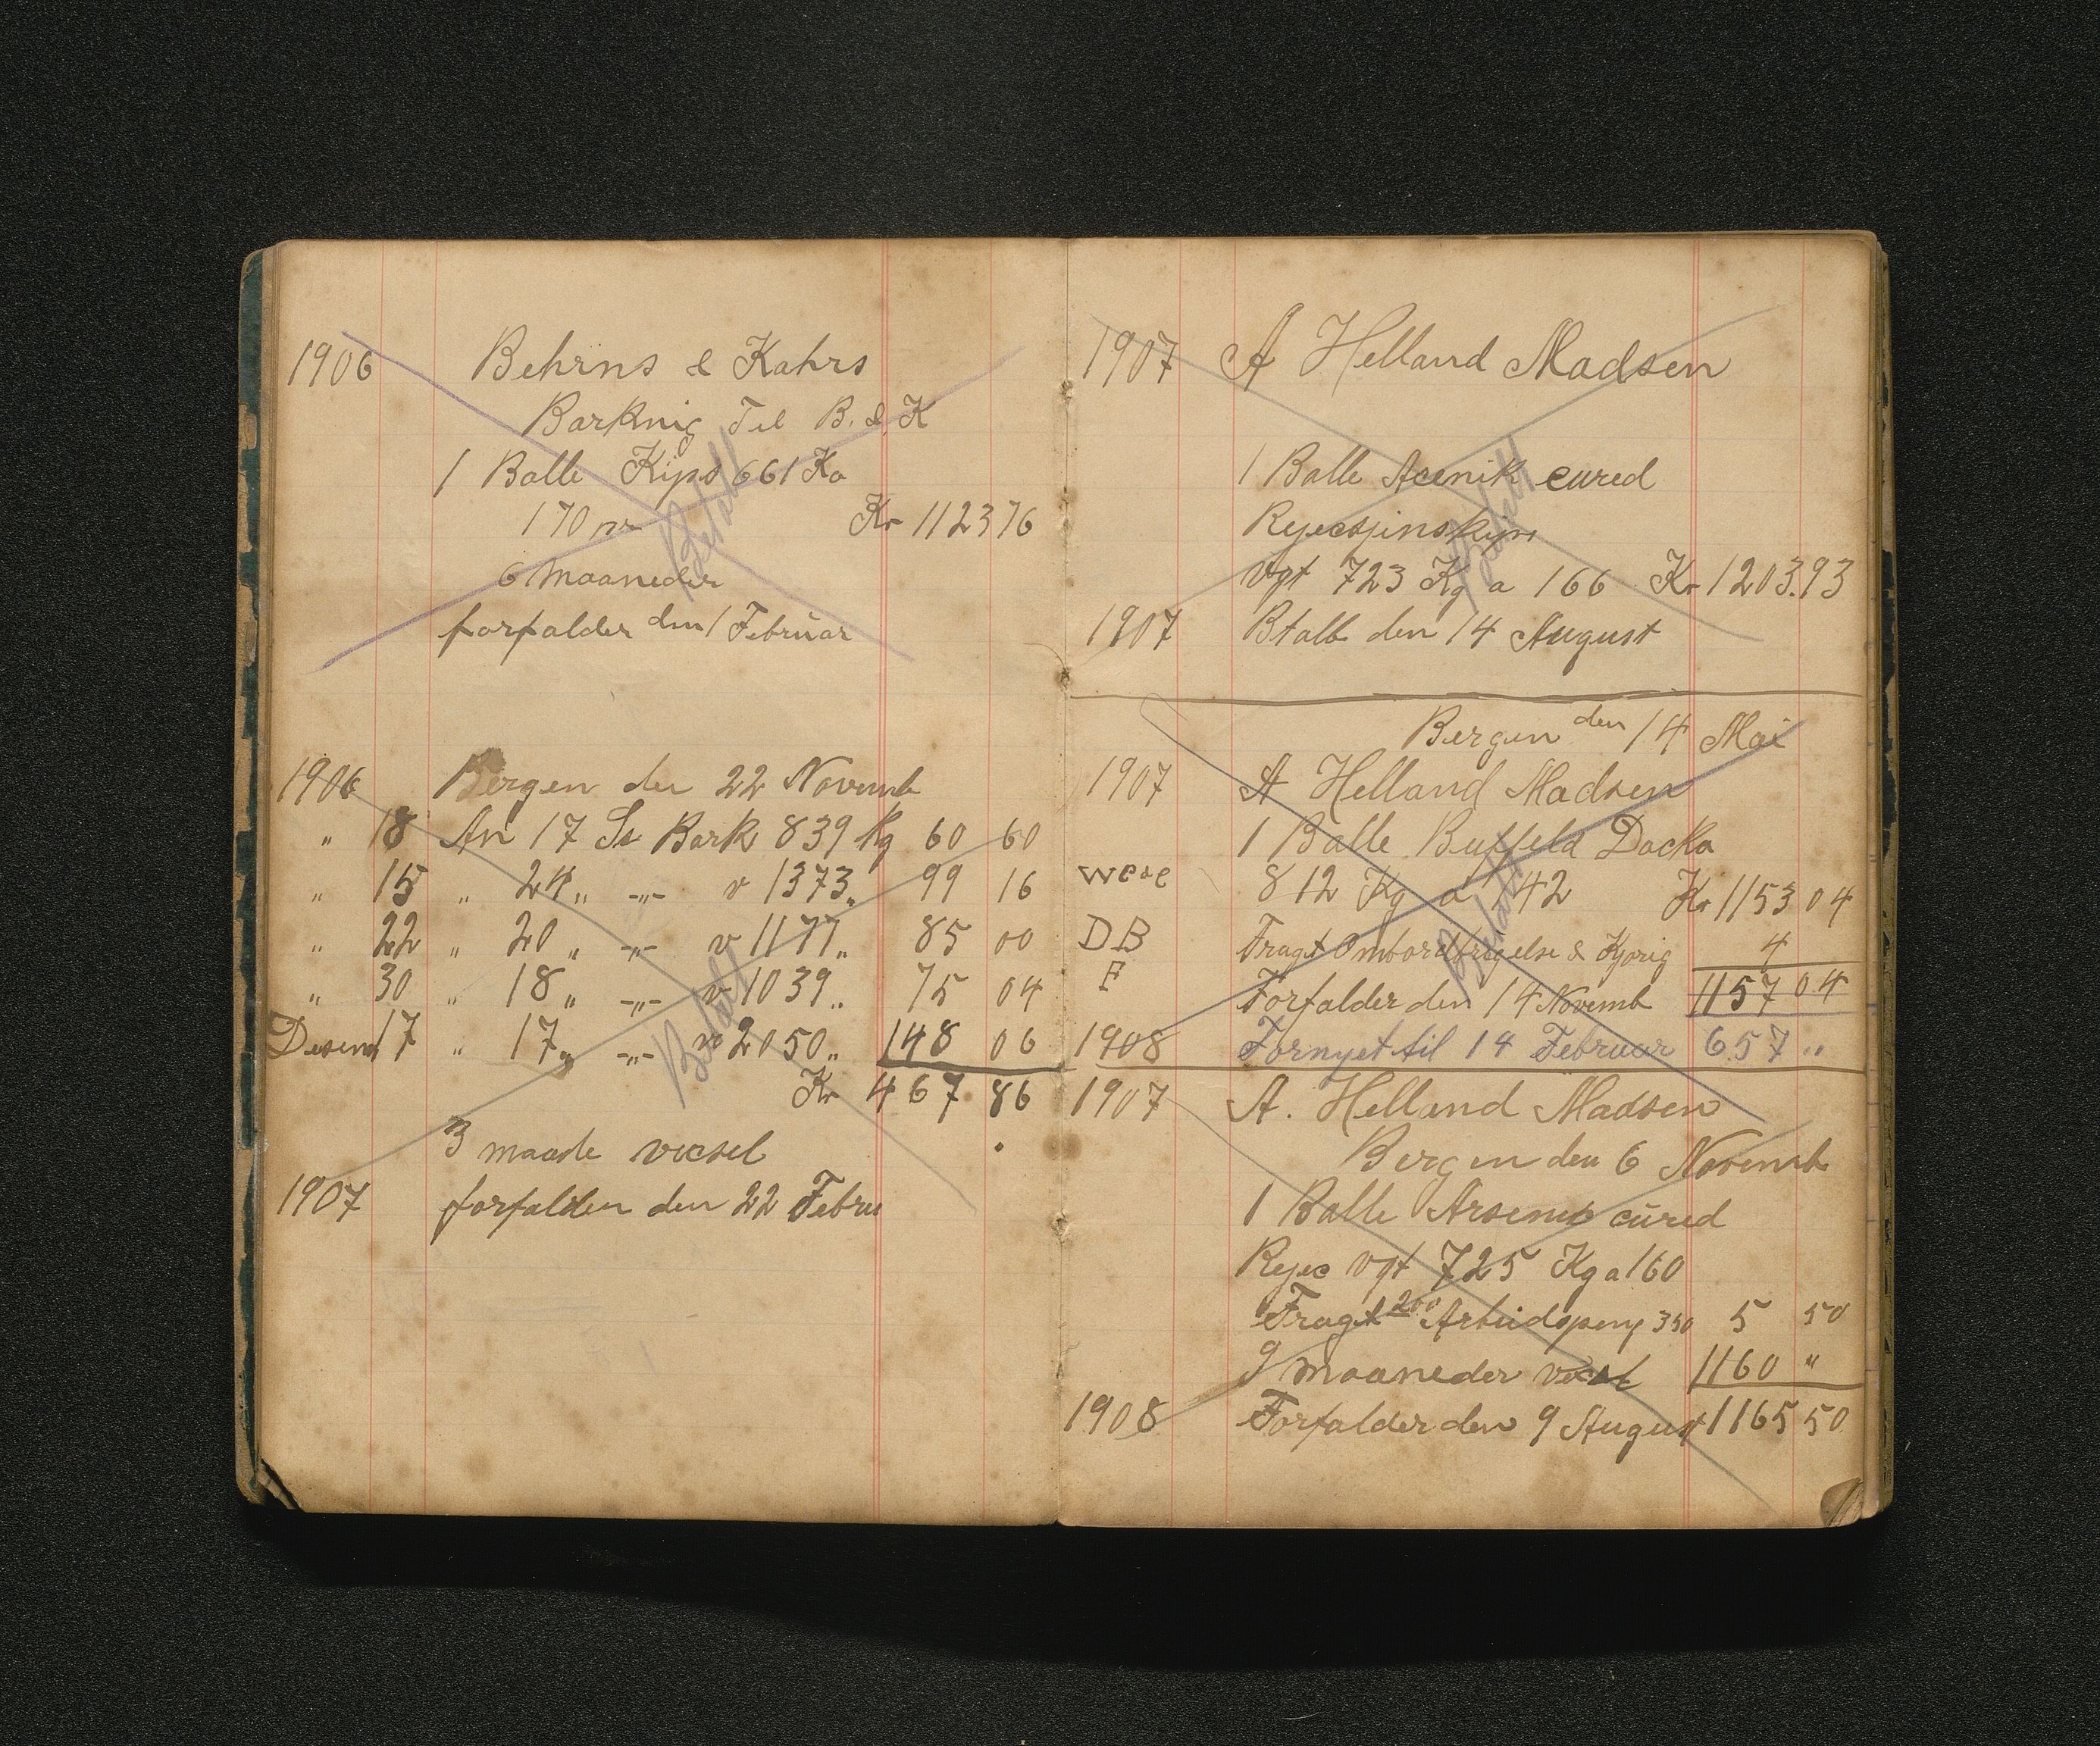 1906 Behrns & Kahrs
Barknig Til B. & K
1 Balle Kips 661 Ko
170 pr Kr 1123 76
6 Maaneder
forfalder den 1 Februar
Betalt
1906 Bergen den 22 Novemb
" 18 An 17 Sk Bark 839 Kg 60 60
" 15 " 24 " -"- v 1373 " 99 16
" 22 " 20 " -"- v 1177 " 85 00
" 30 " 18 " -"- v 1039 " 75 04
Desem 17 " 17 " -"- v 2050 " 148 06
Kr 467.86
3 maade vecsel
1907 forfalden den 22 Febru
Betalt
1907 A Helland Madsen
1 Balle Acenik cured
Rejecsjinskips
Vgt 723 Kg a 166 Kr 1203.93
1907 Btalt den 14 August
Betalt
Bergen den 14 Mai
1907 A Helland Madsen
1 Balle Buffels Dacka
812 Kg a 142 Kr 1153 04
DB Fragt Ombordbrigelse & Kjorig 4
F Forfalder den 14 Novemb 1157 04
1908 Fornyet til 14 Februar 657 "
Betalt
1907 A. Helland Madsen
Bergen den 6 Novemb
1 Balle Arsenik cured
Rejec vgt 725 Kg a 160
Fragt 200 Arbeidspeng 350 5 50
9 Maaneder 1160 "
1908 Forfalder den 9 August 1165 50